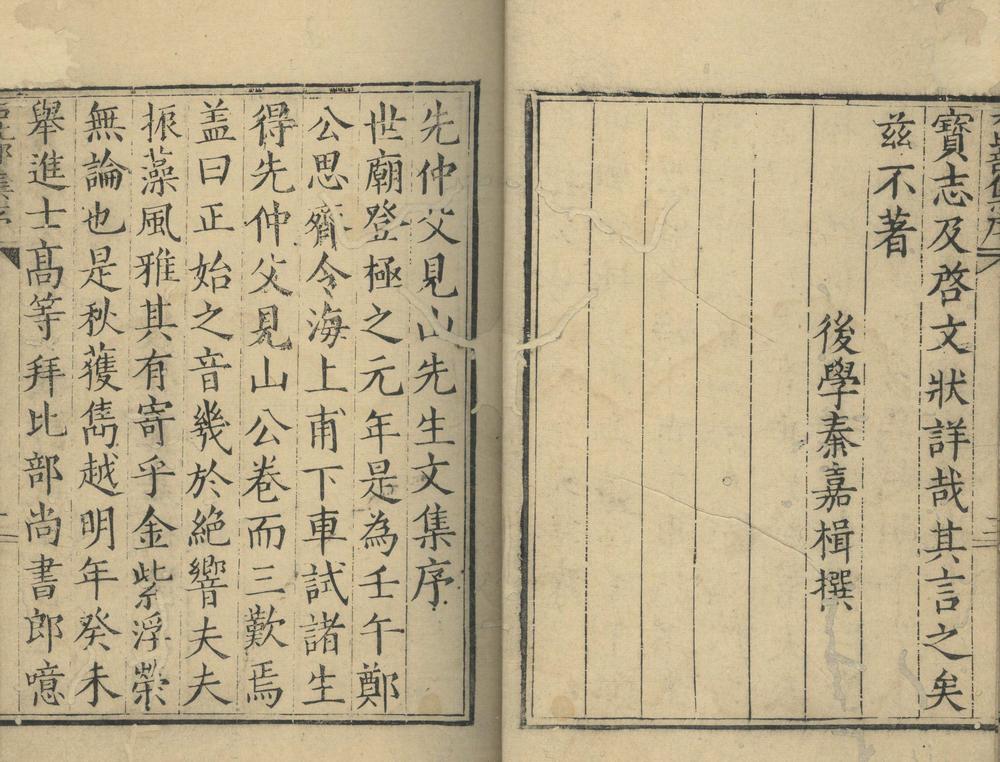 寶志及啓文狀詳哉其言之矣
茲不著
後學秦嘉楫撰
三
先仲父見山先生文集序
世廟登極之元年是為壬午鄭
公思齋令海上甫下車試諸生
得先仲父見山公卷而三歎焉
盖曰正始之音幾於絕響夫夫
振藻風雅其有寄乎金紫浮榮
無論也是秋獲雋越明年癸未
舉進士髙等拜比部尚書郎噫